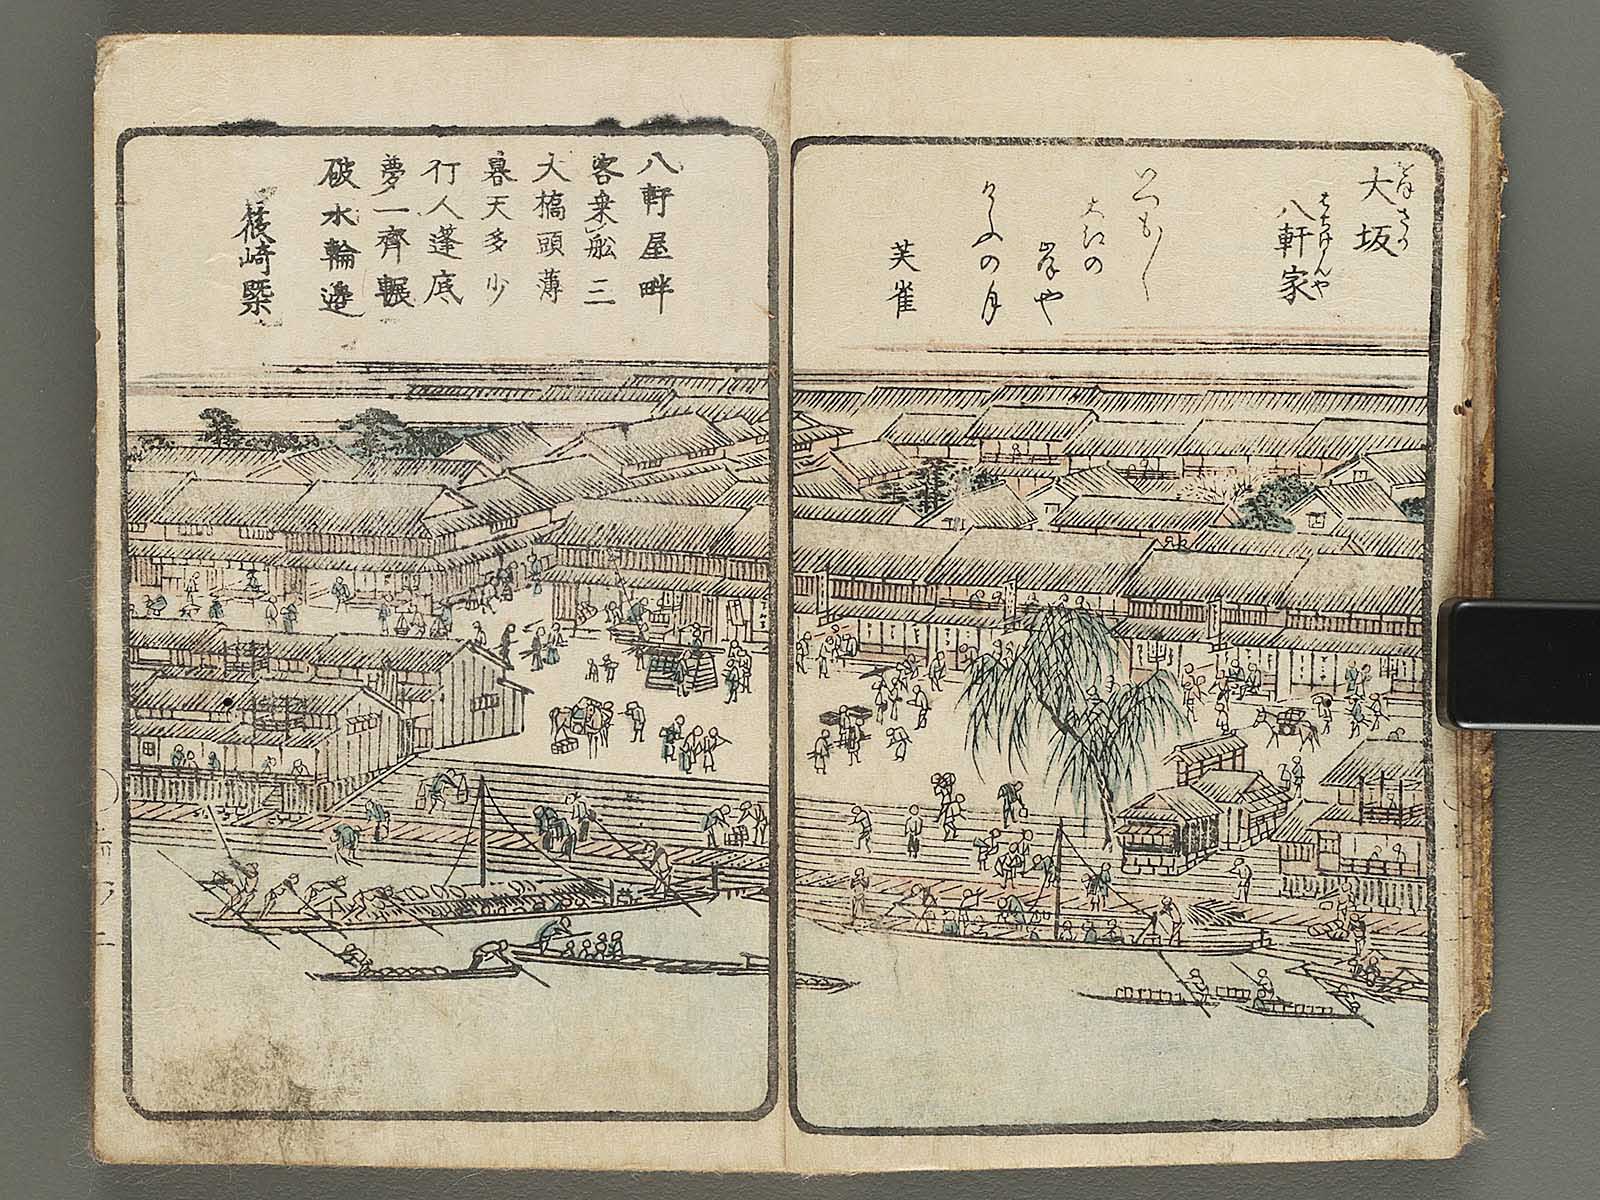 大坂
おほさか
八軒家
はちけんや
大江の
岸や
けふの月
芙雀
八軒屋畔
客乗舩三
大橋頭薄
暮天多少
行人蓬底
夢一齊輾
破水輪邉
篠崎槩